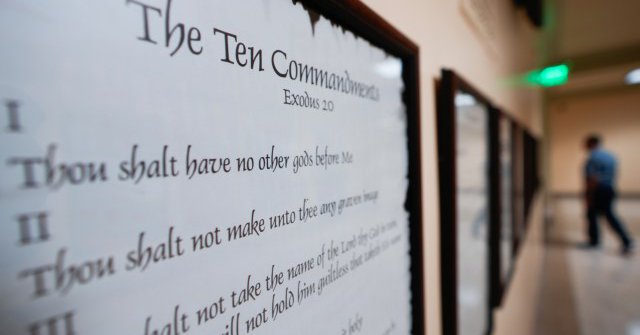 The Ten Commandments
Exodus 20
I
Thou shalt have no other gods before Me
II
Thou shalt not make unto thee any graven image
III
shalt not take the name of the Lord thy God in vain,
will not hold him guiltless that
holy